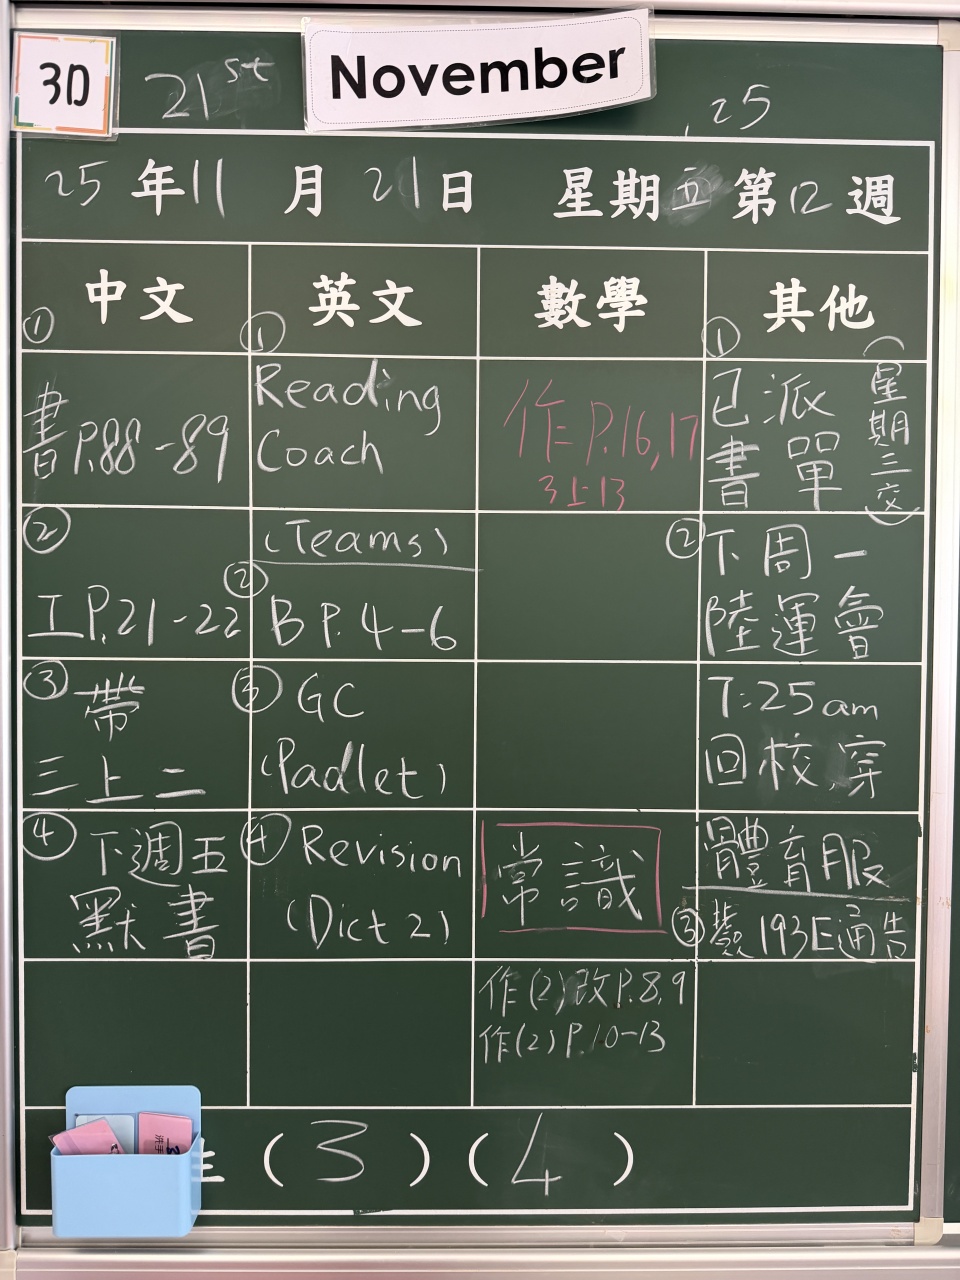 3D
21st
November
,25
25年11月21日 星期五 第12週
中文
英文
數學
其他
①
書P.88-89
②
工P.21-22
③帶
三上二
④下週五
默書
①
Reading
Coach
(Teams)
②BP.4-6
③GC
(Padlet)
④Revision
(Dict 2)
作P.16,17
3上13
常識
作(2)改P.8,9
作(2)P.10-13
①
已派
書單
(星期三交)
②下周一
陸運會
7:25am
回校,穿
體育服
③ 193E通告
生(3)(4)